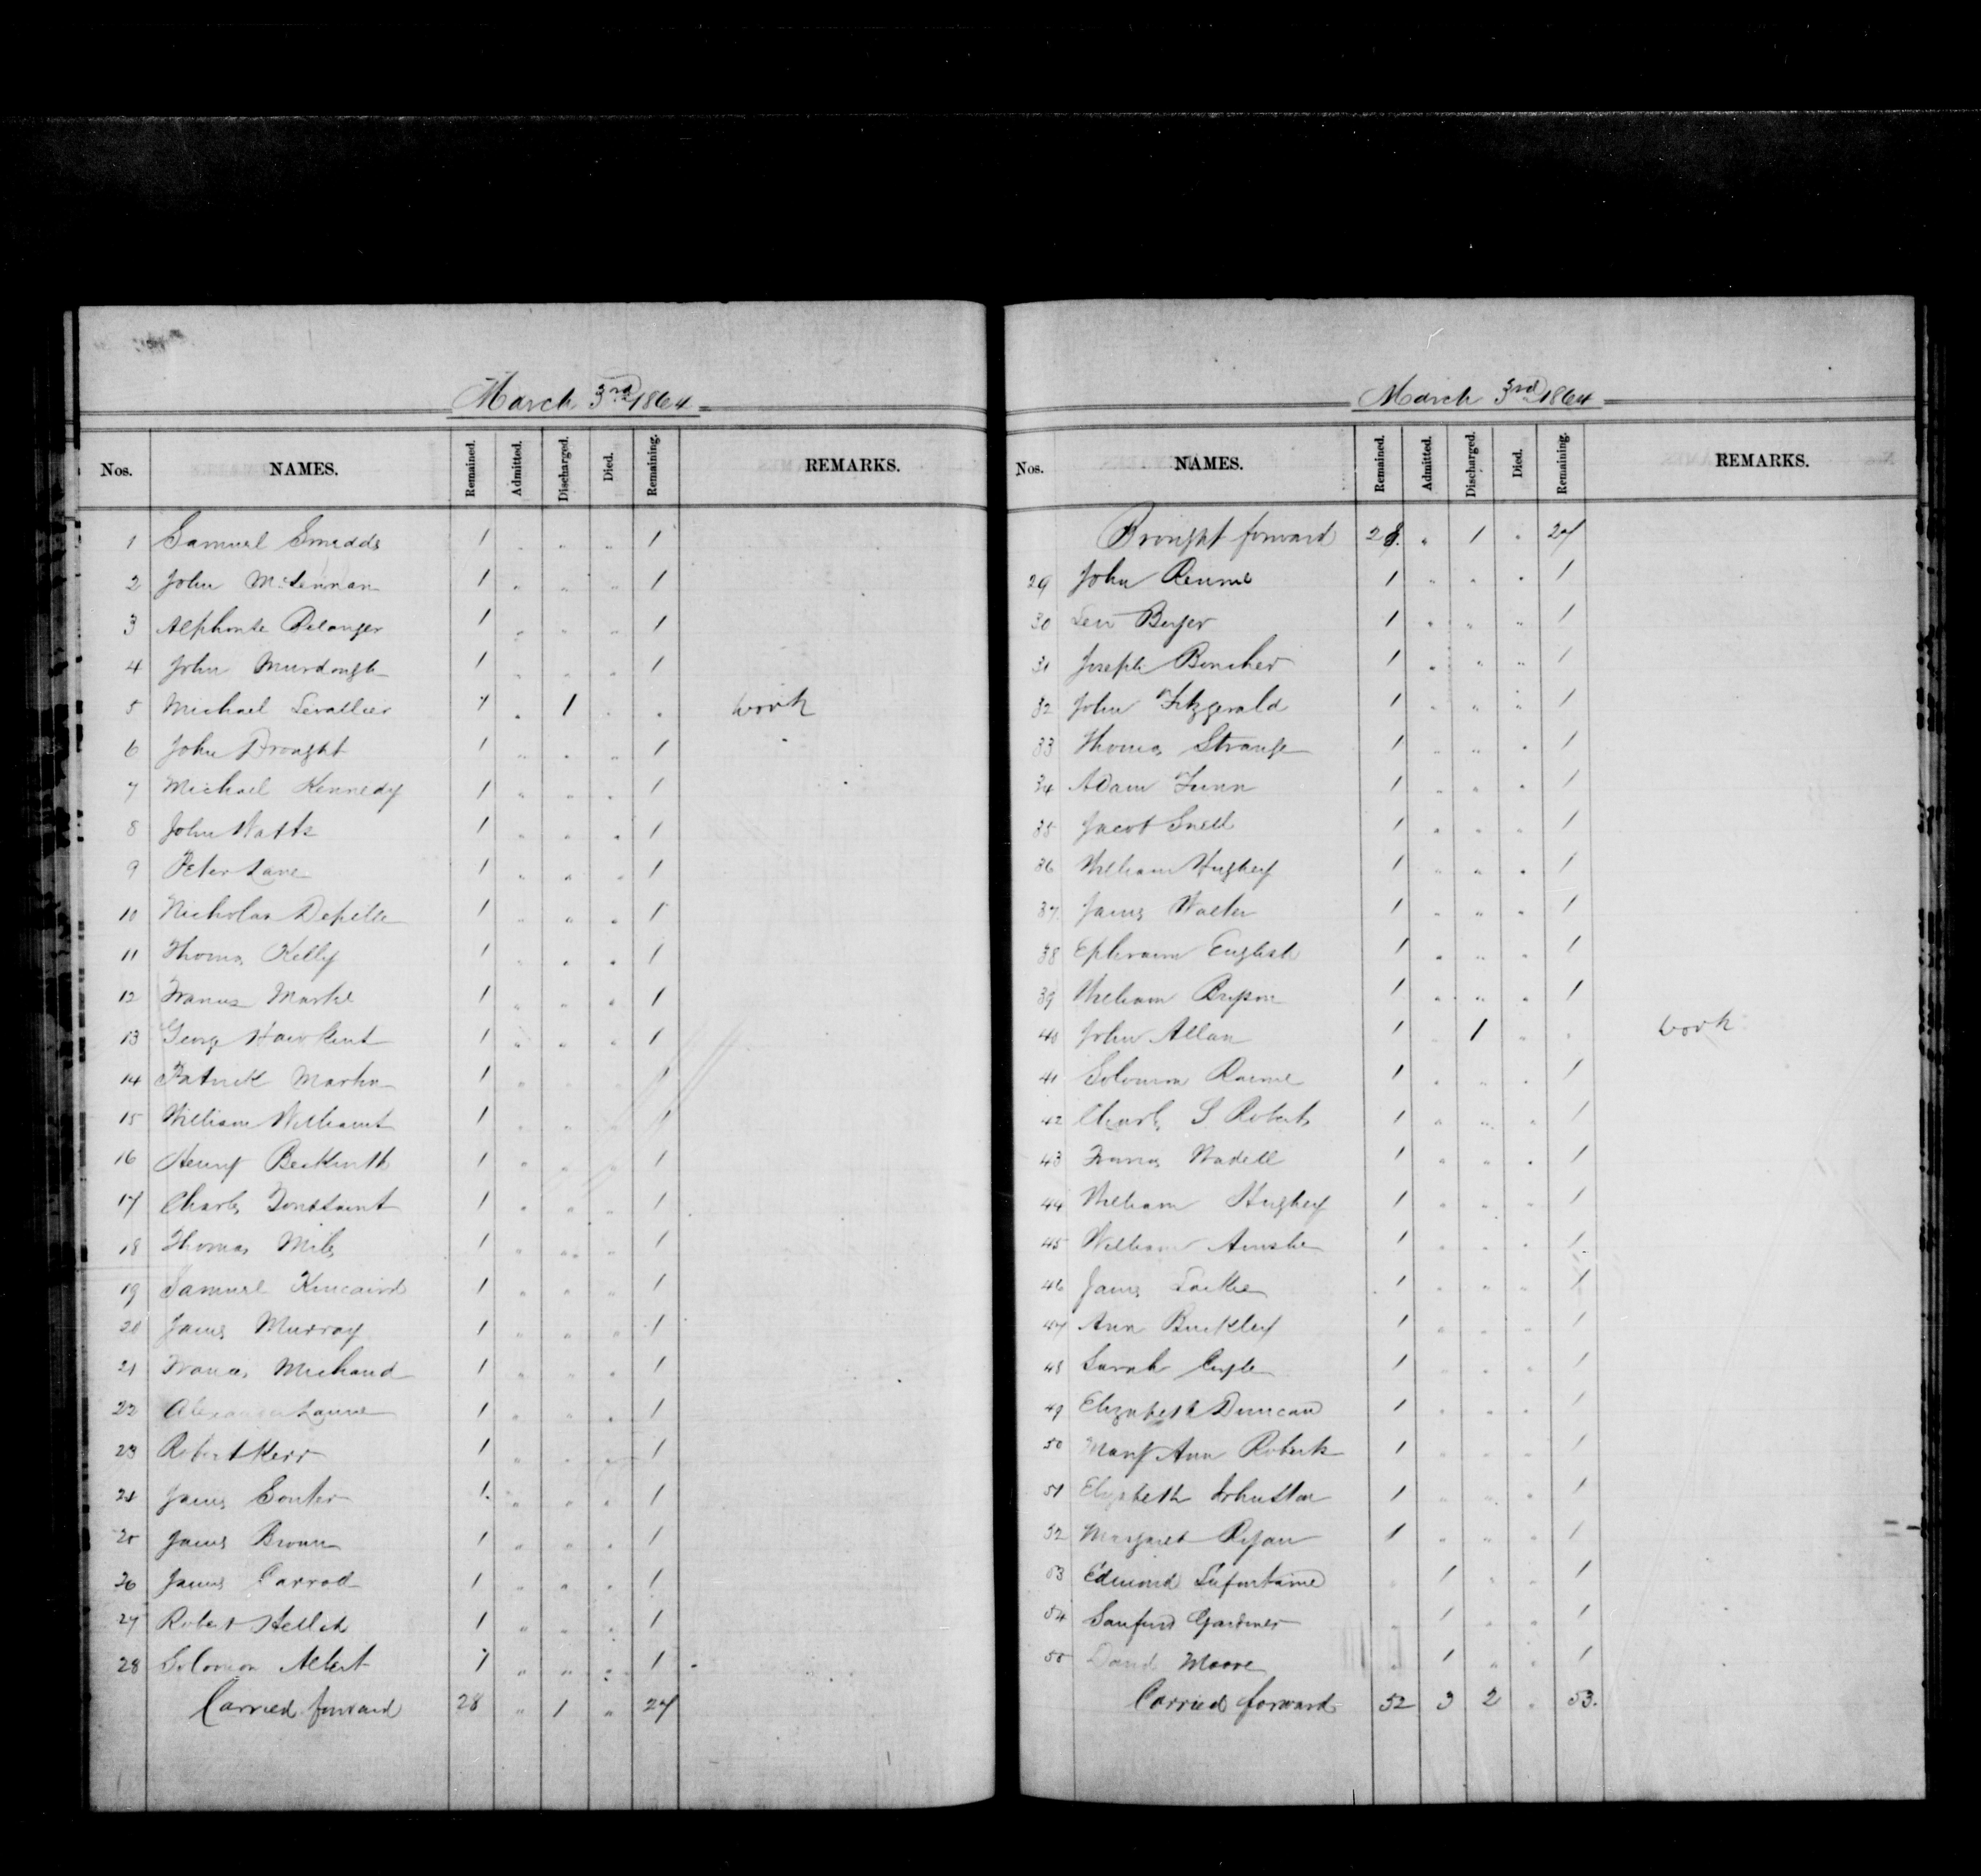 March 3rd 1864
Nos. NAMES. Remained. Admitted. Discharged. Died. Remaining. REMARKS.
1 Samuel Smedds 1 " " " 1
2 John McLennan 1 " " " 1
3 Alphonse Belanger 1 " " " 1
4 John Murdough 1 " " " 1
5 Michael Levallier 1 " 1 " " work
6 John Drought 1 " " " 1
7 Michael Kennedy 1 " " " 1
8 John Watts 1 " " " 1
9 Peter Lane 1 " " " 1
10 Nicholas 1 " " " 1
11 Thomas Kelly 1 " " " 1
12 Francis 1 " " " 1
13 George Hawkins 1 " " " 1
14 Patrick Martin 1 " " " 1
15 William Williams 1 " " " 1
16 Henry Beckwith 1 " " " 1
17 Charles Toussaint 1 " " " 1
18 Thomas Miles 1 " " " 1
19 Samuel Kincaird 1 " " " 1
20 James Murray 1 " " " 1
21 Francis Michaud 1 " " " 1
22 Alexander 1 " " " 1
23 Robert Kerr 1 " " " 1
24 James Souter 1 " " " 1
25 James Brown 1 " " " 1
26 James Carrod 1 " " " 1
27 Robert 1 " " " 1
28 Solomon Albert 1 " " " 1
Carried forward 28 " 1 " 27
March 3rd 1864
Nos. NAMES. Remained. Admitted. Discharged. Died. Remaining. REMARKS.
Brought forward 28 " 1 " 27
29 John 1 " " " 1
30 1 " " " 1
31 Joseph Boucher 1 " " " 1
32 John Fitzgerald 1 " " " 1
33 Thomas Strange 1 " " " 1
34 Adam Funn 1 " " " 1
35 Jacob Snell 1 " " " 1
36 William Hughey 1 " " " 1
37 James Walter 1 " " " 1
38 Ephraim English 1 " " " 1
39 William Bryson 1 " " " 1
40 John Allan 1 " 1 " " work
41 Solomon 1 " " " 1
42 Charles S Roberts 1 " " " 1
43 Francis Wadell 1 " " " 1
44 William Hughey 1 " " " 1
45 William Ainslie 1 " " " 1
46 James 1 " " " 1
47 Ann Buckley 1 " " " 1
48 Sarah 1 " " " 1
49 Elizabeth Duncan 1 " " " 1
50 Mary Ann Roberts 1 " " " 1
51 Elizabeth Johnston 1 " " " 1
52 Margaret Ryan 1 " " " 1
53 Edmond Lafontaine " 1 " " 1
54 Sanford Gardiner " 1 " " 1
55 David Moore " 1 " " 1
Carried forward 52 3 2 " 53.